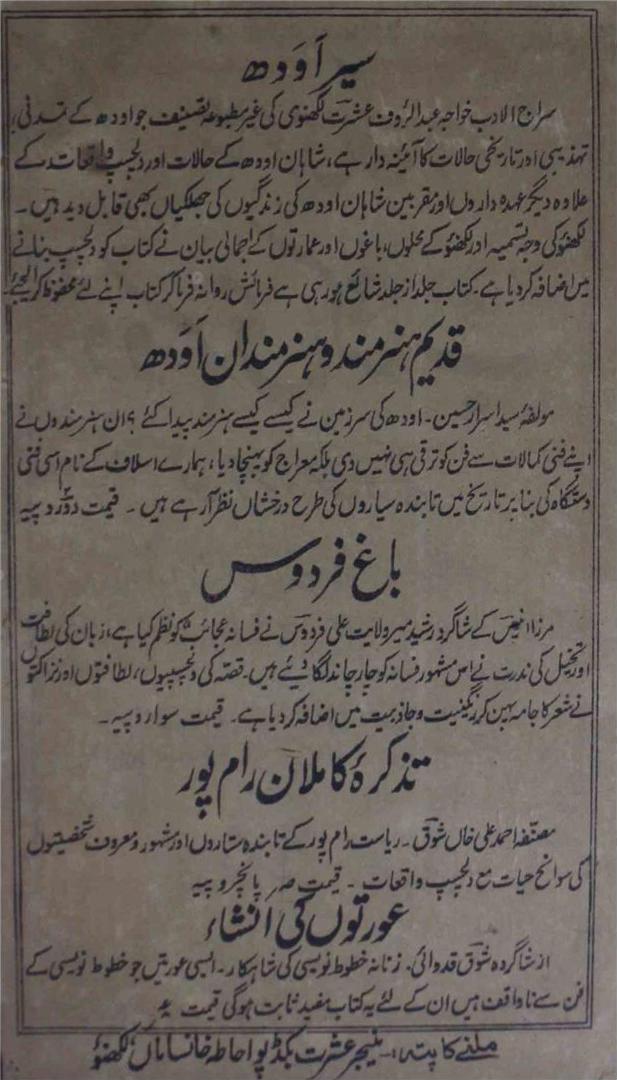 سیر اَوَدھ
سراج الادب خواجہ عبدالرؤف عشرتؔ لکھنوی کی غیر مطبوعہ تصنیف جو اودھ کے تمدنی،
تہذیبی اور تاریخی حالات کا آئینہ دار ہے، شاہان اودھ کے حالات اور دلچسپ واقعات کے
علاوہ دیگر عہدہ داروں اور مقربین شاہان اودھ کی زندگیوں کی جھلکیاں بھی قابل دید ہیں۔
لکھنؤ کی وجہ تسمیہ اور لکھنؤ کے محلوں، باغوں اور عمارتوں کے اجمالی بیان نے کتاب کو دلچسپ بنانے
میں اضافہ کر دیا ہے۔ کتاب جلد از جلد شائع ہو رہی ہے فرمائش روانہ فرما کر کتاب اپنے لئے محفوظ کر لیجئے
قدیم ہنرمند و ہنرمندان اَوَدھ
مولفۂ سید اسرار حسین۔ اودھ کی سرزمین نے کیسے کیسے ہنرمند پیدا کئے؟ ان ہنرمندوں نے
اپنے فنی کمالات سے فن کو ترقی ہی نہیں دی بلکہ معراج کو پہنچا دیا، ہمارے اسلاف کے نام اسی فنی
دستگاہ کی بنا پر تاریخ میں تابندہ سیاروں کی طرح درخشاں نظر آرہے ہیں۔ قیمت دو روپیہ
باغ فردوس
مرزا انیسؔ کے شاگرد رشید میر ولایت علی فردوسؔ نے فسانہ عجائب کو نظم کیا ہے، زبان کی لطافت
اور تخیل کی ندرت نے اس مشہور فسانہ کو چار چاند لگا دیئے ہیں۔ قصہ کی دلچسپیوں، لطافتوں اور نزاکتوں
نے شعر کا جامہ پہن کر رنگینیت و جاذبیت میں اضافہ کر دیا ہے۔ قیمت سوا روپیہ۔
تذکرۂ کاملان رام پور
مصنفہ احمد علی خاں شوقؔ۔ ریاست رام پور کے تابندہ ستاروں اور مشہور و معروف شخصیتوں
کی سوانح حیات مع دلچسپ واقعات۔ قیمت صہ پانچروپیہ
عورتوں کی انشاء
از شاگردہ شوقؔ قدوائی۔ زنانہ خطوط نویسی کی شاہکار۔ ایسی عورتیں جو خطوط نویسی کے
فن سے ناواقف ہیں ان کے لئے یہ کتاب مفید ثابت ہوگی قیمت
ملنے کا پتہ:۔ منیجر عشرت بکڈپو احاطہ خانساماں، لکھنؤ